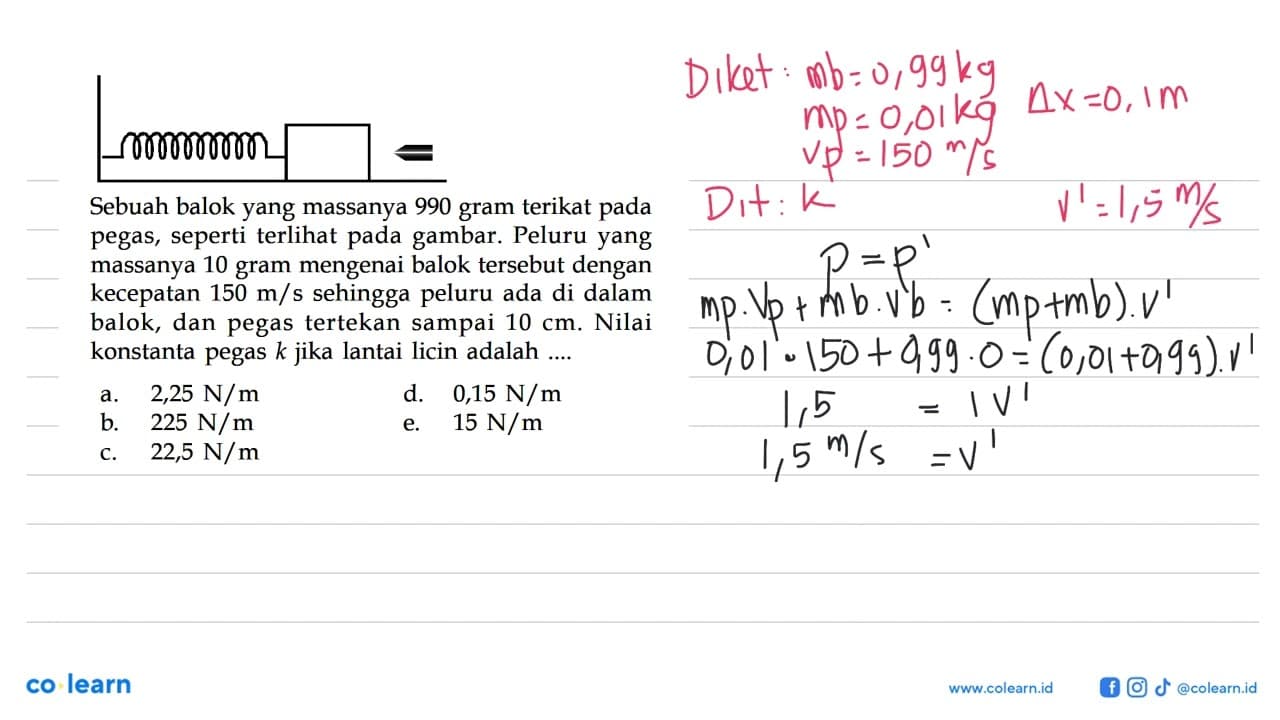 Sebuah balok yang massanya 990 gram terikat pada
pegas, seperti terlihat pada gambar. Peluru yang
massanya 10 gram mengenai balok tersebut dengan
kecepatan 150 m/s sehingga peluru ada di dalam
balok, dan pegas tertekan sampai 10 cm. Nilai
konstanta pegas k jika lantai licin adalah ....
a. 2,25 N/m
b. 225 N/m
c. 22,5 N/m
d. 0,15 N/m
e. 15 N/m
Diket : mb = 0,99 kg
mp = 0,01 kg
vp = 150 m/s
Δx = 0,1 m
Dit : k
v' = 1,5 m/s
p = p'
mp . Vp + mb . v'b = (mp + mb) . v'
0,01 . 150 + 0,99 . 0 = (0,01 + 0,99) . v'
1,5 = 1 v'
1,5 m/s = v'
co learn
www.colearn.id
@colearn.id